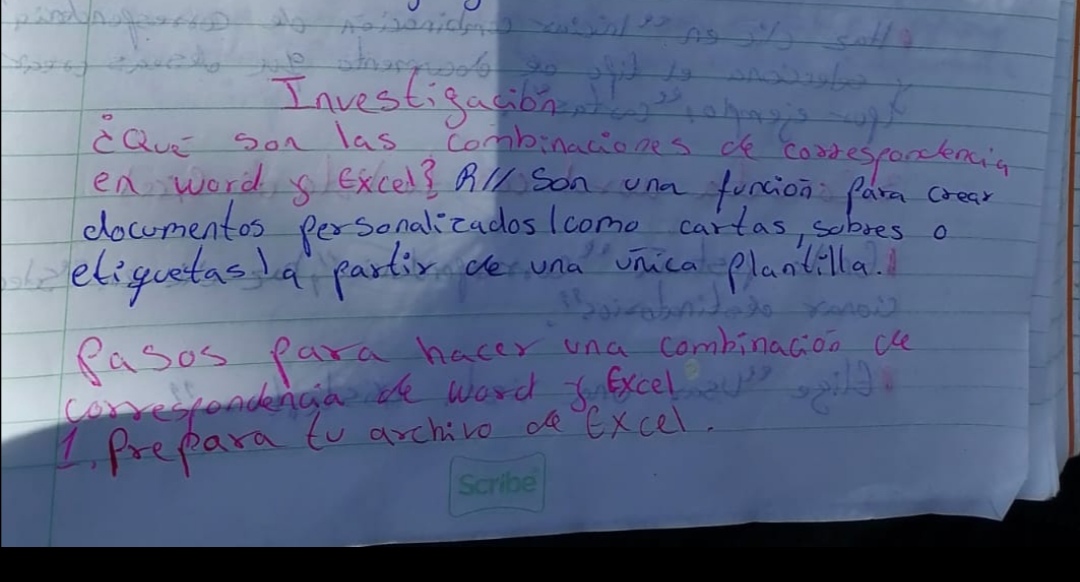 Investigación
¿Qué son las combinaciones de correspondencia
en word y Excel? R// Son una función para crear
documentos personalizados (como cartas, sobres o
etiquetas) a partir de una única plantilla.
Pasos para hacer una combinación de
correspondencia de word y Excel
1. Prepara tu archivo de Excel.
Scribe